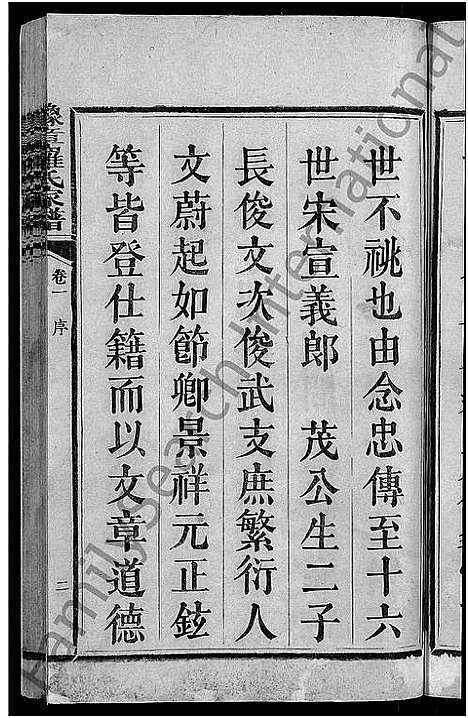 世不祧也由念忠傳至十六
世宋宣義郎　茂公生二子
長俊文次俊武支庶繁衍人
文蔚起如節卿景祥元正鉉
等皆登仕籍而以文章道德
豫章羅氏家譜
卷一　序
二
FamilySearch International